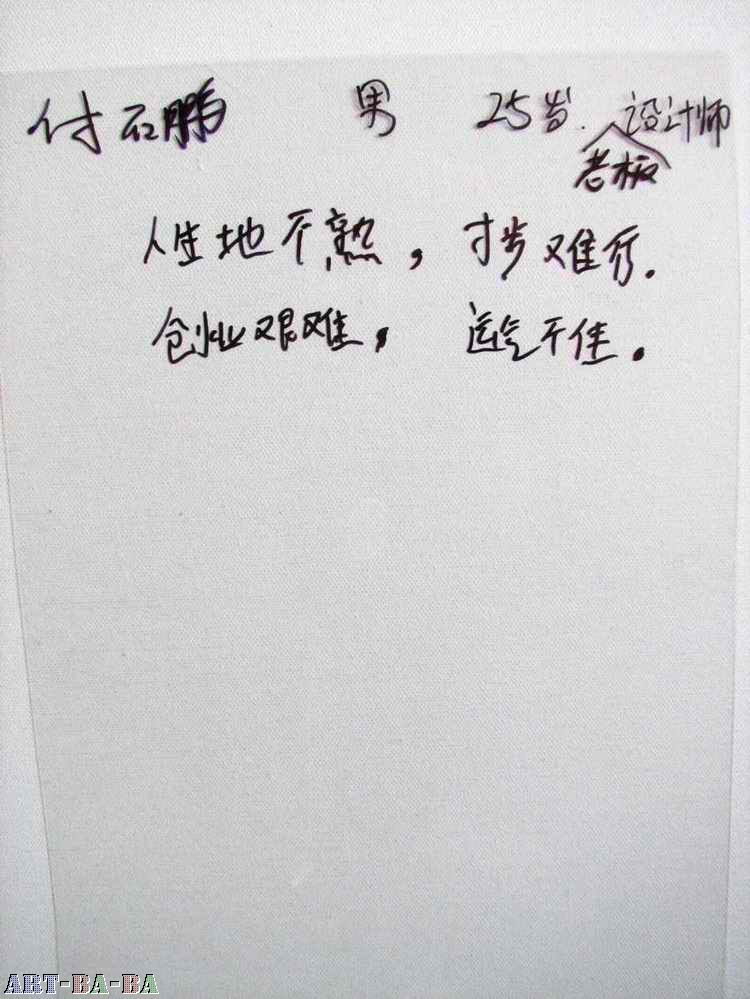 付石鹏 男 25岁. 老板 设计师
人生地不熟, 寸步难行.
创业艰难, 运气不佳.
ART-BA-BA